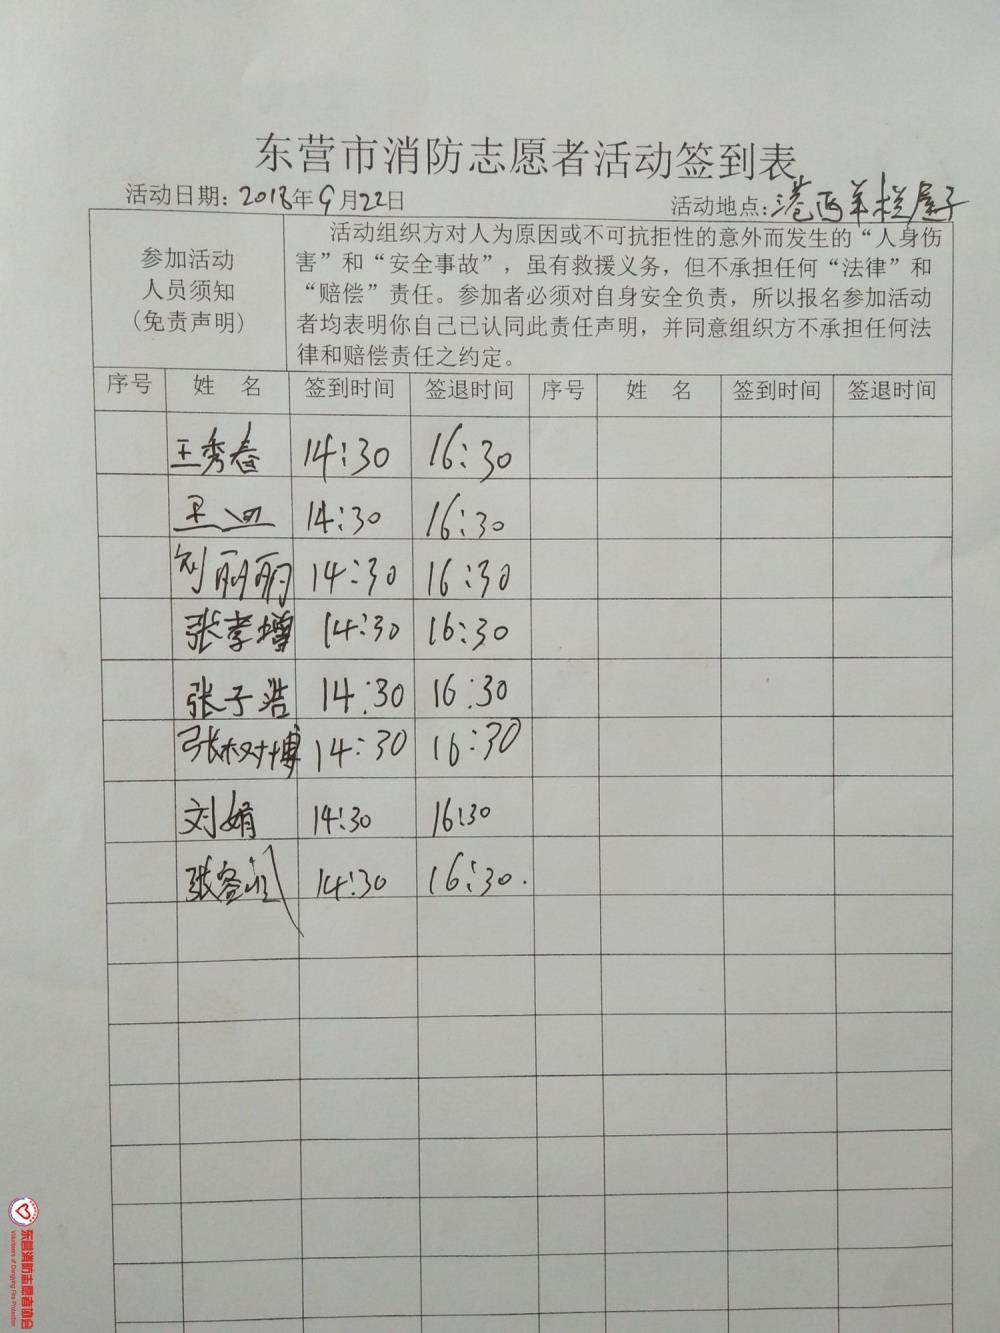 东营市消防志愿者活动签到表
活动日期：2018年9月22日 活动地点：港西羊栏屋子
参加活动
人员须知
(免责声明)
活动组织方对人为原因或不可抗拒性的意外而发生的“人身伤
害”和“安全事故”，虽有救援义务，但不承担任何“法律”和
“赔偿”责任。参加者必须对自身安全负责，所以报名参加活动
者均表明你自己已认同此责任声明，并同意组织方不承担任何法
律和赔偿责任之约定。
序号 姓 名 签到时间 签退时间 序号 姓 名 签到时间 签退时间
王秀春 14:30 16:30
14:30 16:30
刘丽丽 14:30 16:30
张孝增 14:30 16:30
张子浩 14:30 16:30
张树博 14:30 16:30
刘娟 14:30 16:30
14:30 16:30.
东营消防志愿者协会
Volunteers of Dongying Fire Protection